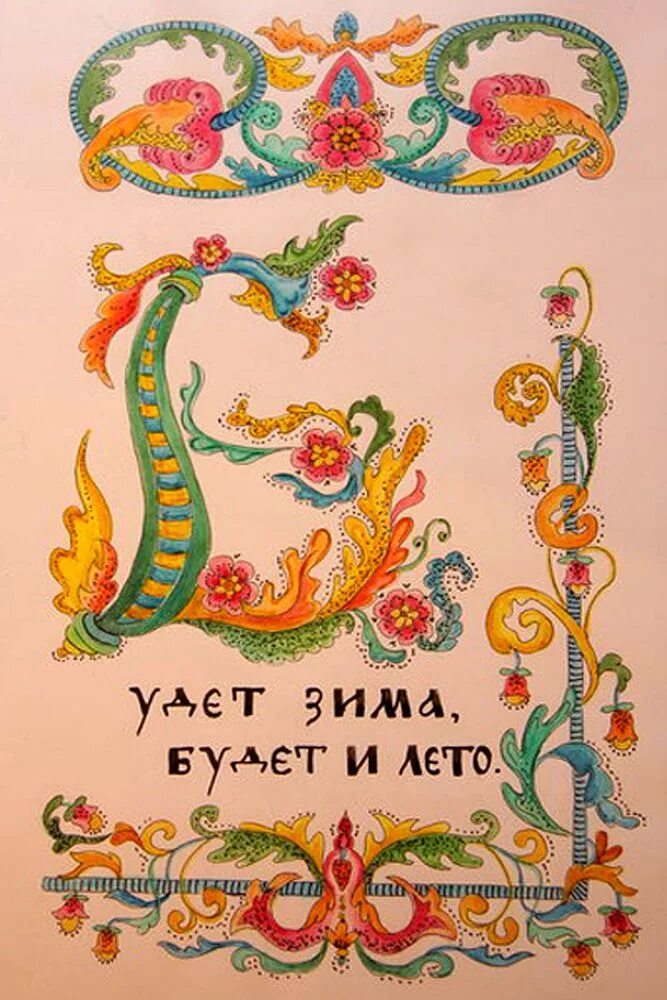 Будет зима,
будет и лето.